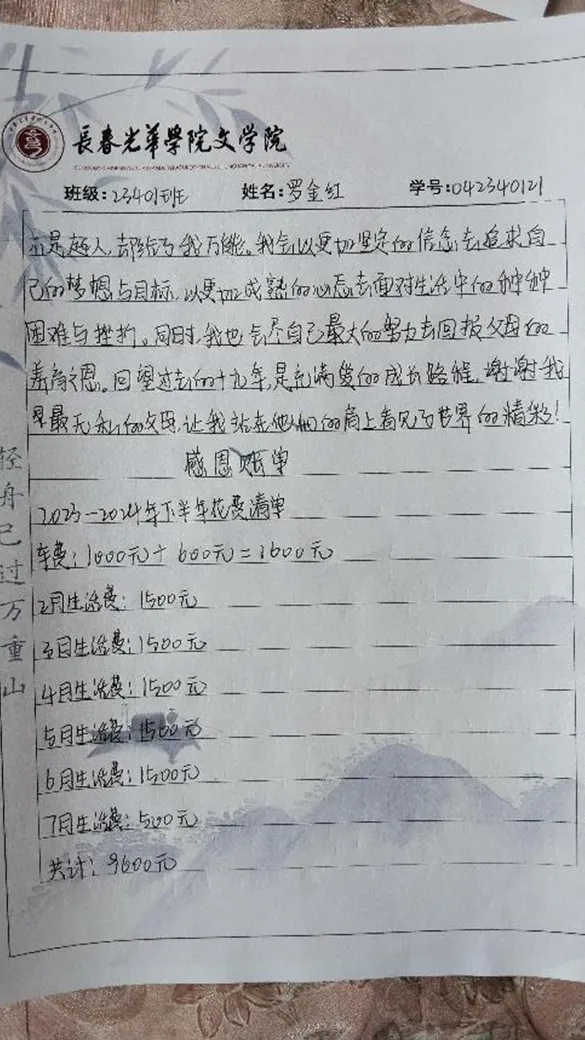 長春光華學院文学院
班级:23401班 姓名:罗金红 学号:042340121
不是超人,却给了我万能。我会以更加坚定的信念去追求自
己的梦想与目标,以更加成熟的心态去面对生活中的种种
困难与挫折。同时,我也会尽自己最大的努力去回报父母的
养育之恩。回望过去的十九年,是充满爱的成长路程,谢谢我
最无私的父母,让我站在他们的肩上看见了世界的精彩!
感恩账单
2023-2024年下半年花费清单
车费:1000元+600元=1600元
2月生活费:1500元
3月生活费:1500元
4月生活费:1500元
5月生活费:1500元
6月生活费:1500元
7月生活费:500元
共计:9600元
轻舟已过万重山